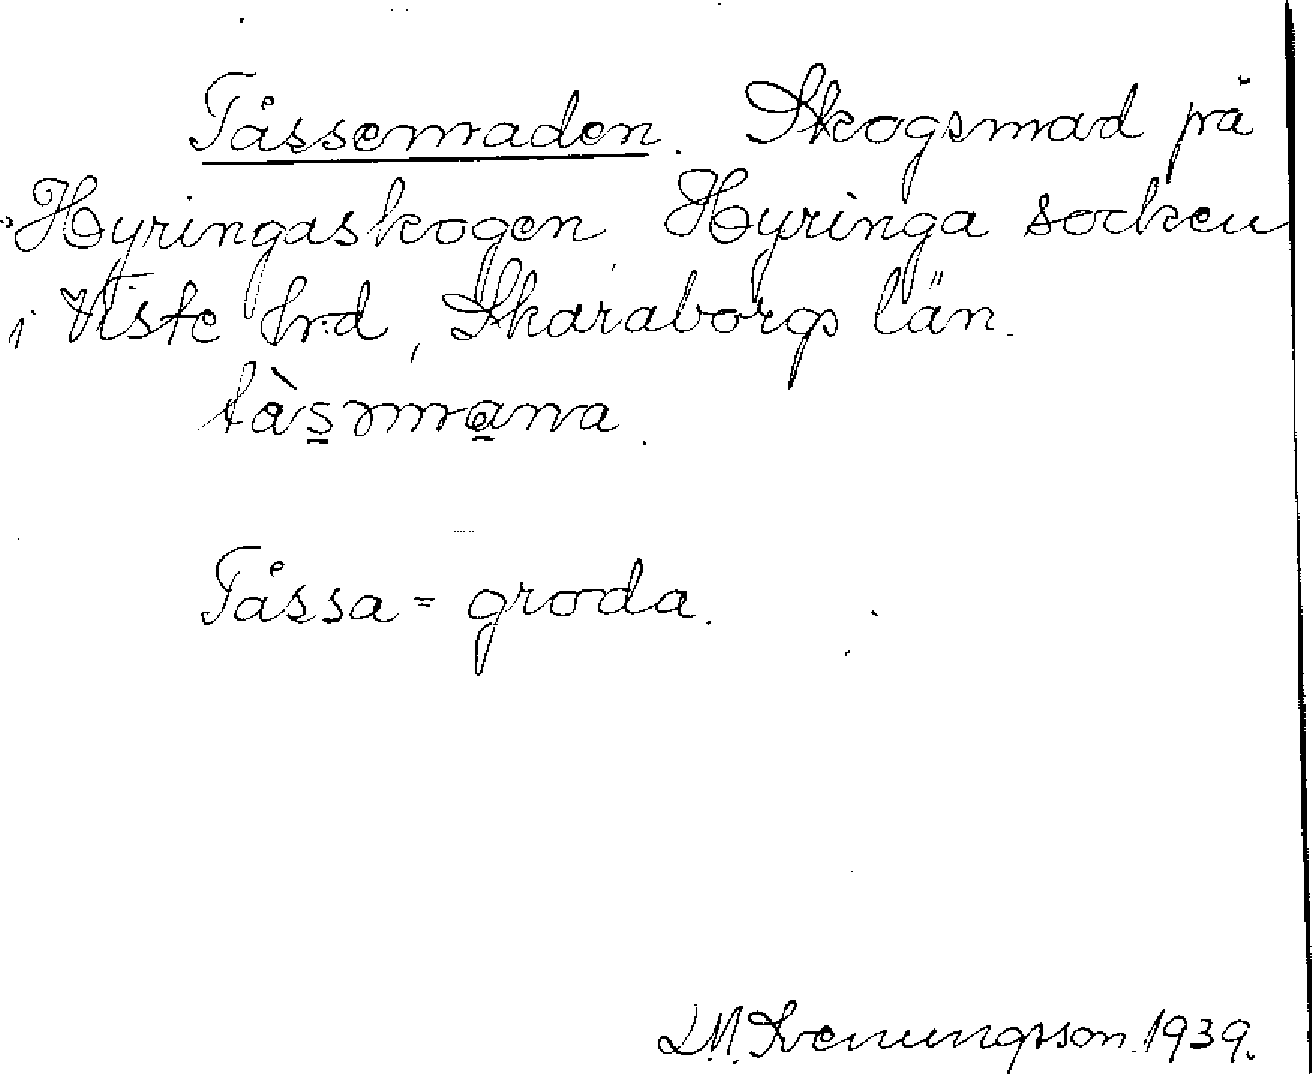 Tåssemaden. Skogsmad på
Hyringaskogen Hyringa socken
i Viste hrd, Skaraborgs län.
Tåssa = groda.
L.M. Svenungsson. 1939.